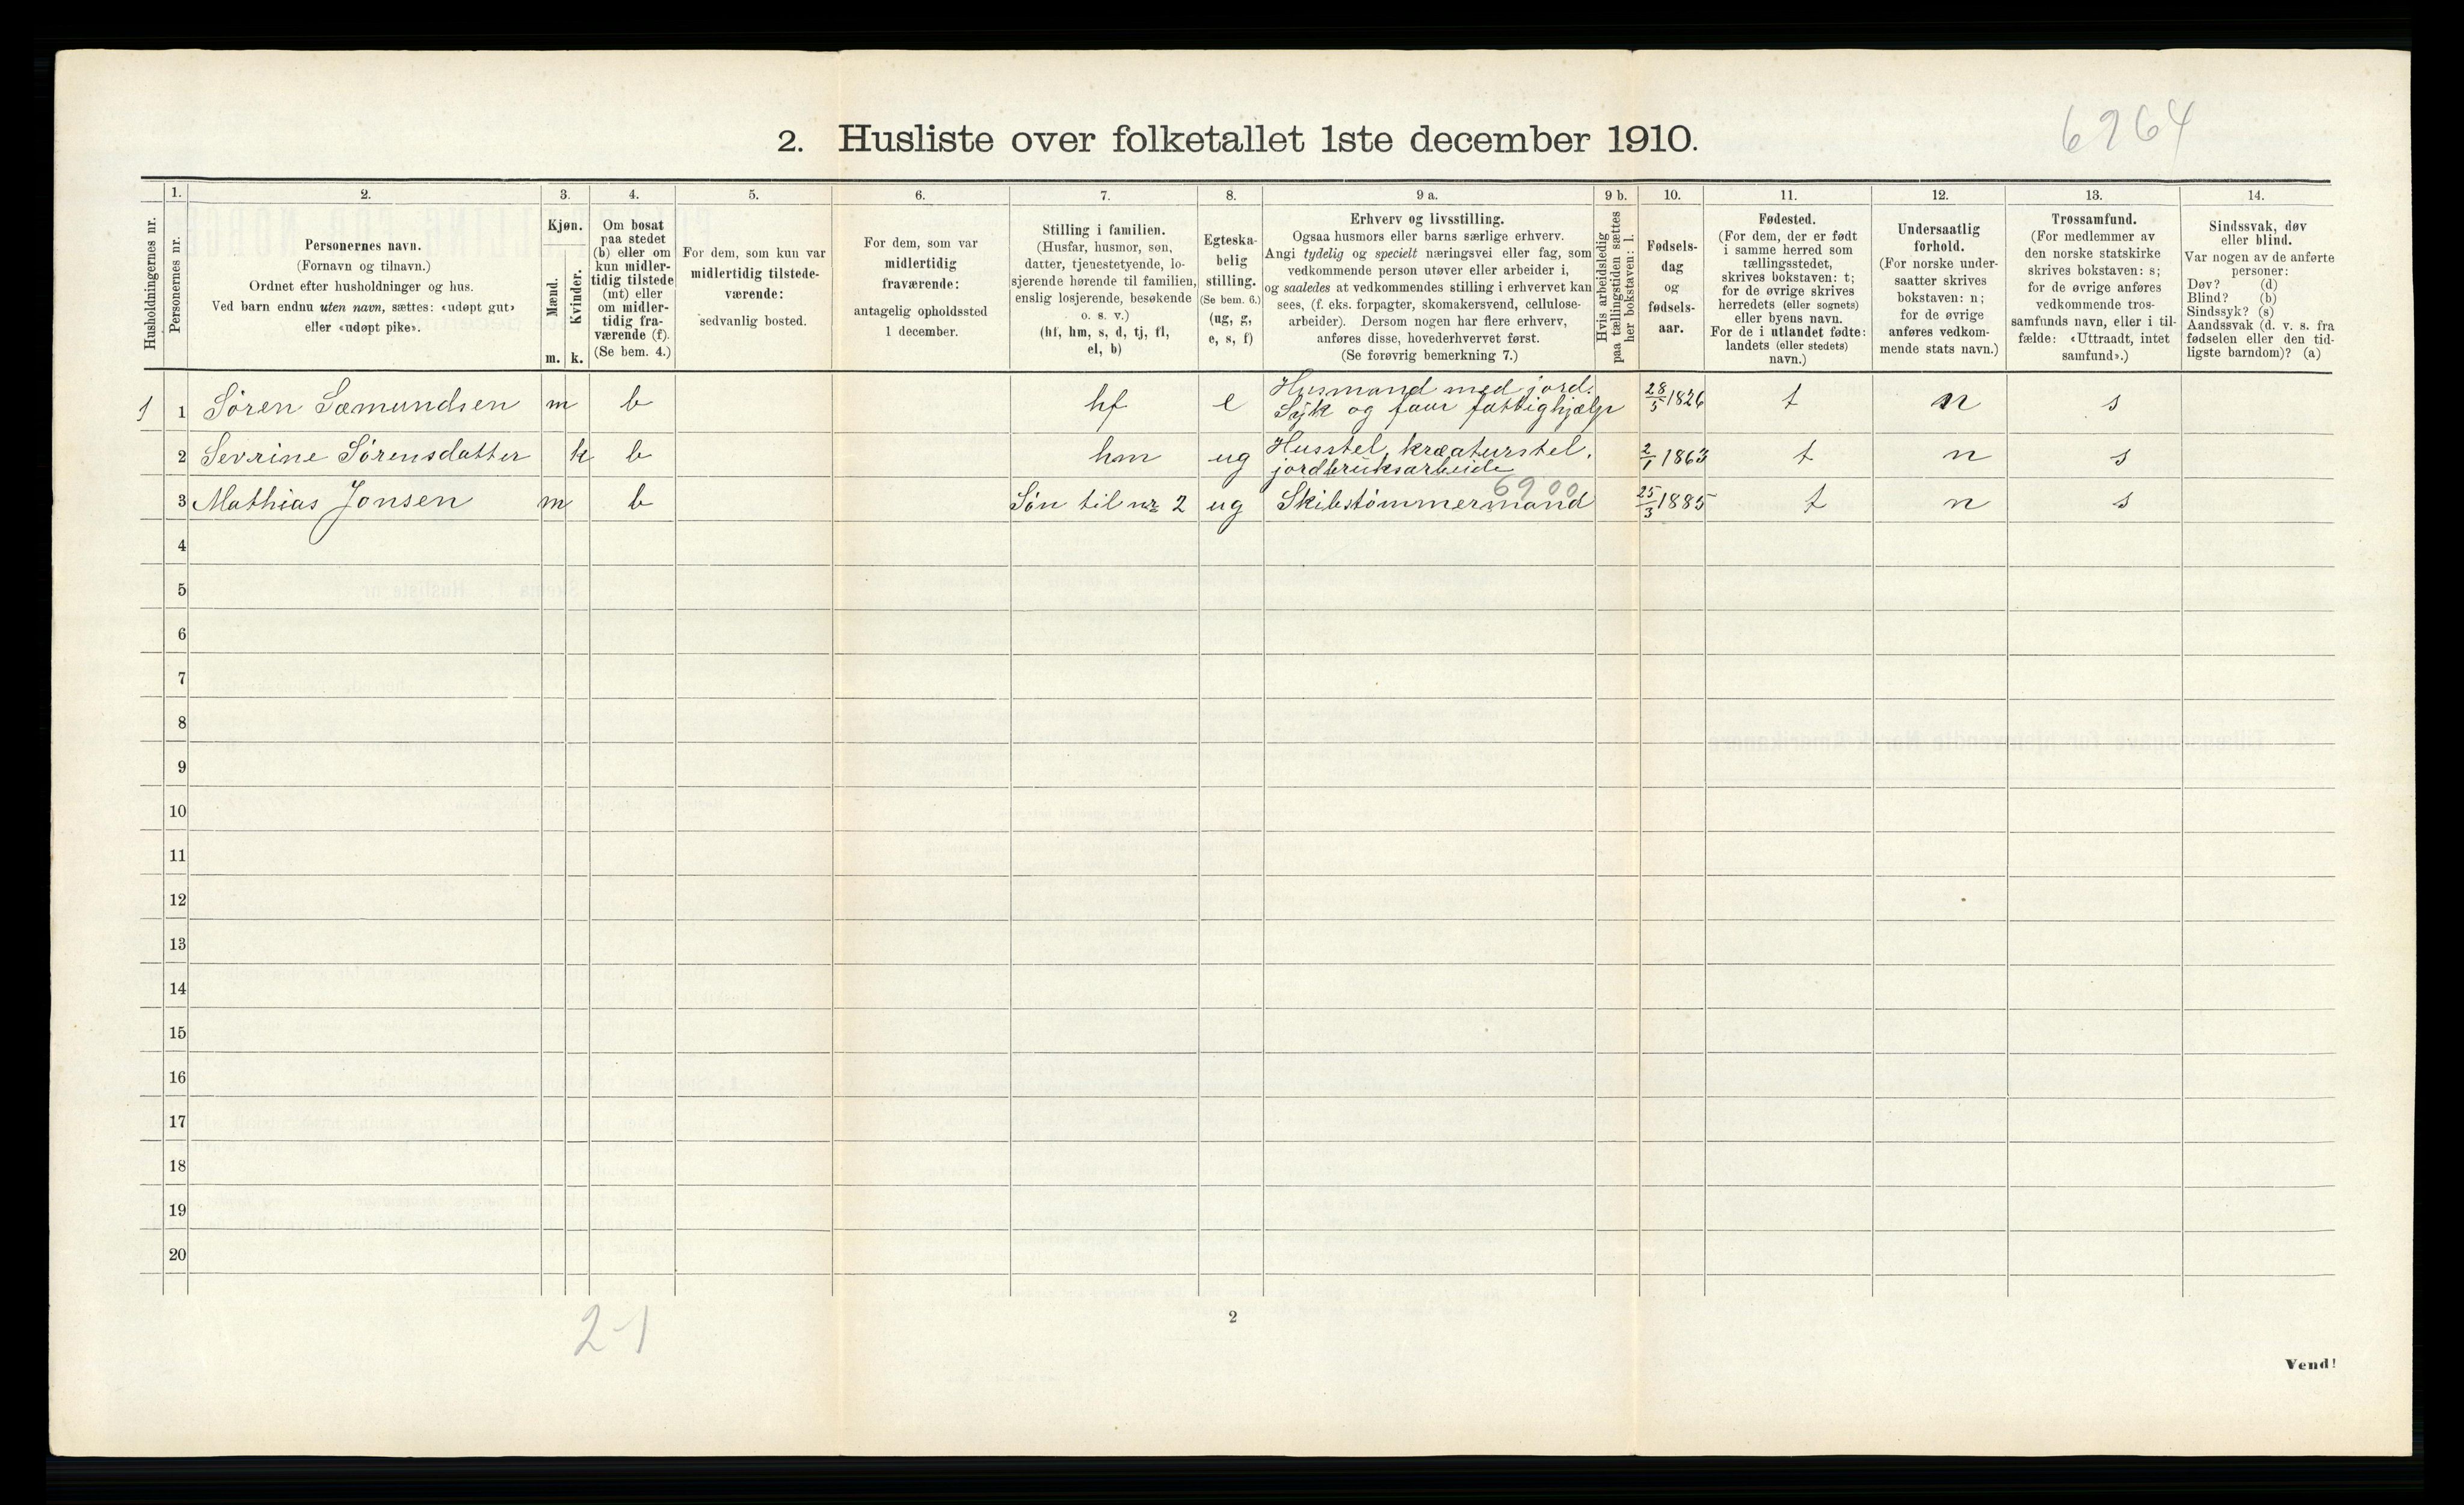 6964
2. Husliste over folketallet 1ste december 1910.
Husholdningernes nr.
1.
Personernes nr.
2.
Personernes navn.
(Fornavn og tilnavn.)
Ordnet efter husholdninger og hus.
Ved barn endnu uten navn, sættes: «udøpt gut»
eller «udøpt pike».
3.
Kjøn.
Mænd.
Kvinder.
m. k.
4.
Om bosat
paa stedet
(b) eller om
kun midler-
tidig tilstede
(mt) eller
om midler-
tidig fra-
værende (f).
(Se bem. 4.)
5.
For dem, som kun var
midlertidig tilstede-
værende:
sedvanlig bosted.
6.
For dem, som var
midlertidig
fraværende:
antagelig opholdssted
1 december.
7.
Stilling i familien.
(Husfar, husmor, søn,
datter, tjenestetyende, lo-
sjerende hørende til familien,
enslig losjerende, besøkende
o. s. v.)
(hf, hm, s, d, tj, fl,
el, b)
8.
Egteska-
belig
stilling.
(Se bem. 6.)
(ug, g,
e, s, f)
9 a.
Erhverv og livsstilling.
Ogsaa husmors eller barns særlige erhverv.
Angi tydelig og specielt næringsvei eller fag, som
vedkommende person utøver eller arbeider i,
og saaledes at vedkommendes stilling i erhvervet kan
sees, (f. eks. forpagter, skomakersvend, cellulose-
arbeider). Dersom nogen har flere erhverv,
anføres disse, hovederhvervet først.
(Se forøvrig bemerkning 7.)
9 b.
Hvis arbeidsledig
paa tællingstiden sættes
her bokstaven: l.
10.
Fødsels-
dag
og
fødsels-
aar.
11.
Fødested.
(For dem, der er født
i samme herred som
tællingsstedet,
skrives bokstaven: t;
for de øvrige skrives
herredets (eller sognets)
eller byens navn.
For de i utlandet fødte:
landets (eller stedets)
navn.)
12.
Undersaatlig
forhold.
(For norske under-
saatter skrives
bokstaven: n;
for de øvrige
anføres vedkom-
mende stats navn.)
13.
Trossamfund.
(For medlemmer av
den norske statskirke
skrives bokstaven: s;
for de øvrige anføres
vedkommende tros-
samfunds navn, eller i til-
fælde: «Uttraadt, intet
samfund».)
14.
Sindssvak, døv
eller blind.
Var nogen av de anførte
personer:
Døv? (d)
Blind? (b)
Sindssyk? (s)
Aandssvak (d. v. s. fra
fødselen eller den tid-
ligste barndom)? (a)
1 1 Sören Sæmundsen m b hf e Husmand med jord. Syk og faar fattighjælp 28/5 1826 t n s
2 Sevrine Sörensdatter k b hm ug Husstel, kræaturstel. jordbruksarbeide 2/1 1863 t n s
6900
3 Mathias Jonsen m b Sön til nr 2 ug Skibstömmermand 25/3 1885 t n s
4
5
6
7
8
9
10
11
12
13
14
15
16
17
18
19
20
2-1
2
Vend!